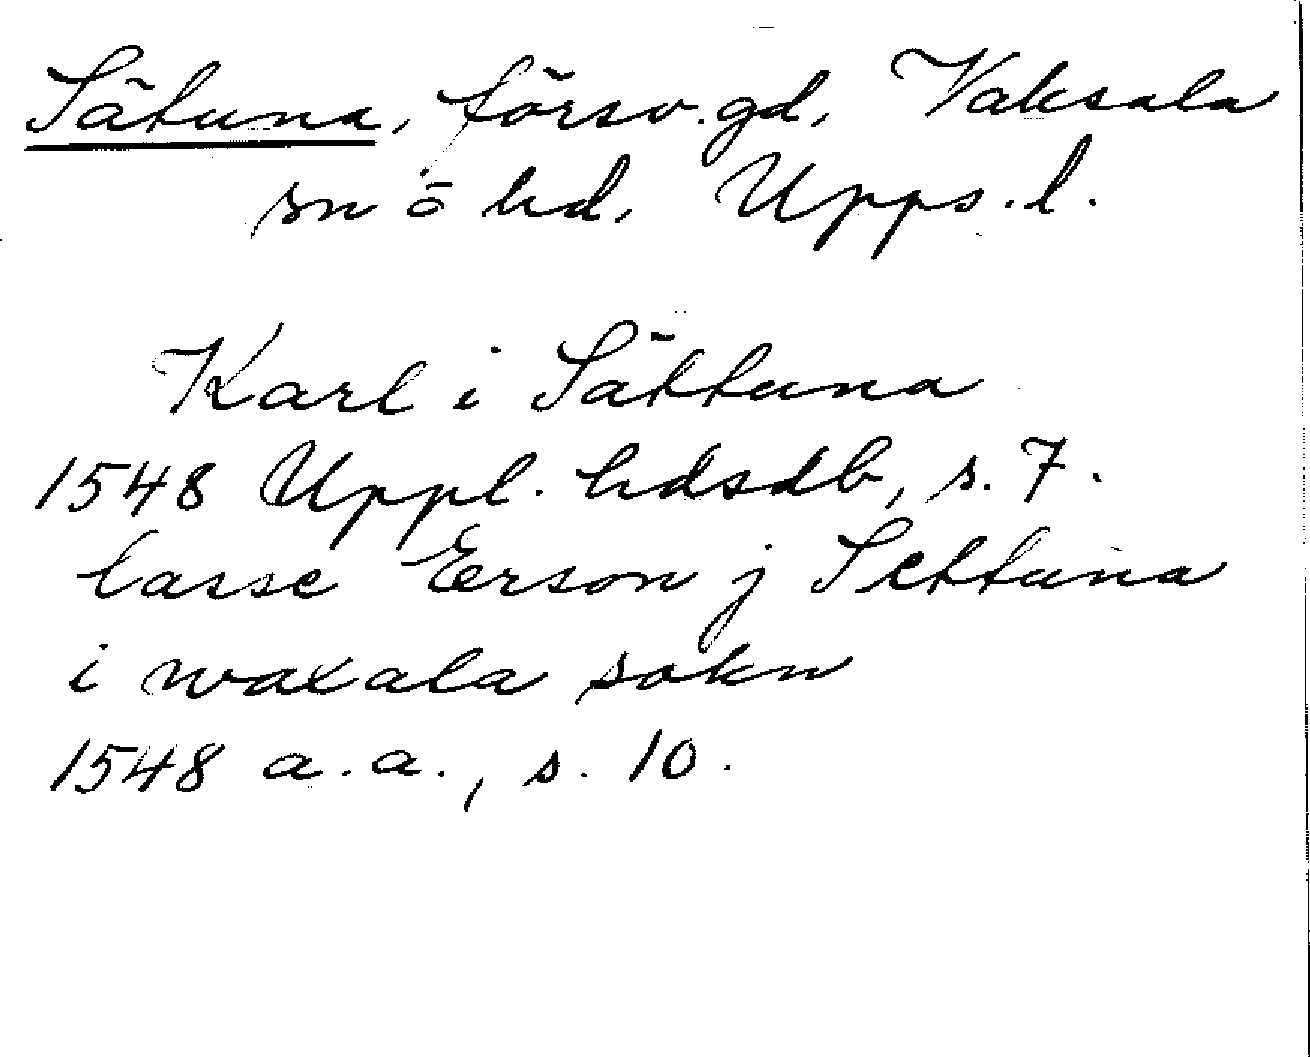 Sätuna, försv. gd, Vaksala
sn o hd, Upps. l.
Karl i Sättuna
1548 Uppl. hdsdb, s. 7.
lasse Erson j Settuna
i waxala sokn
1548 a. a., s. 10.